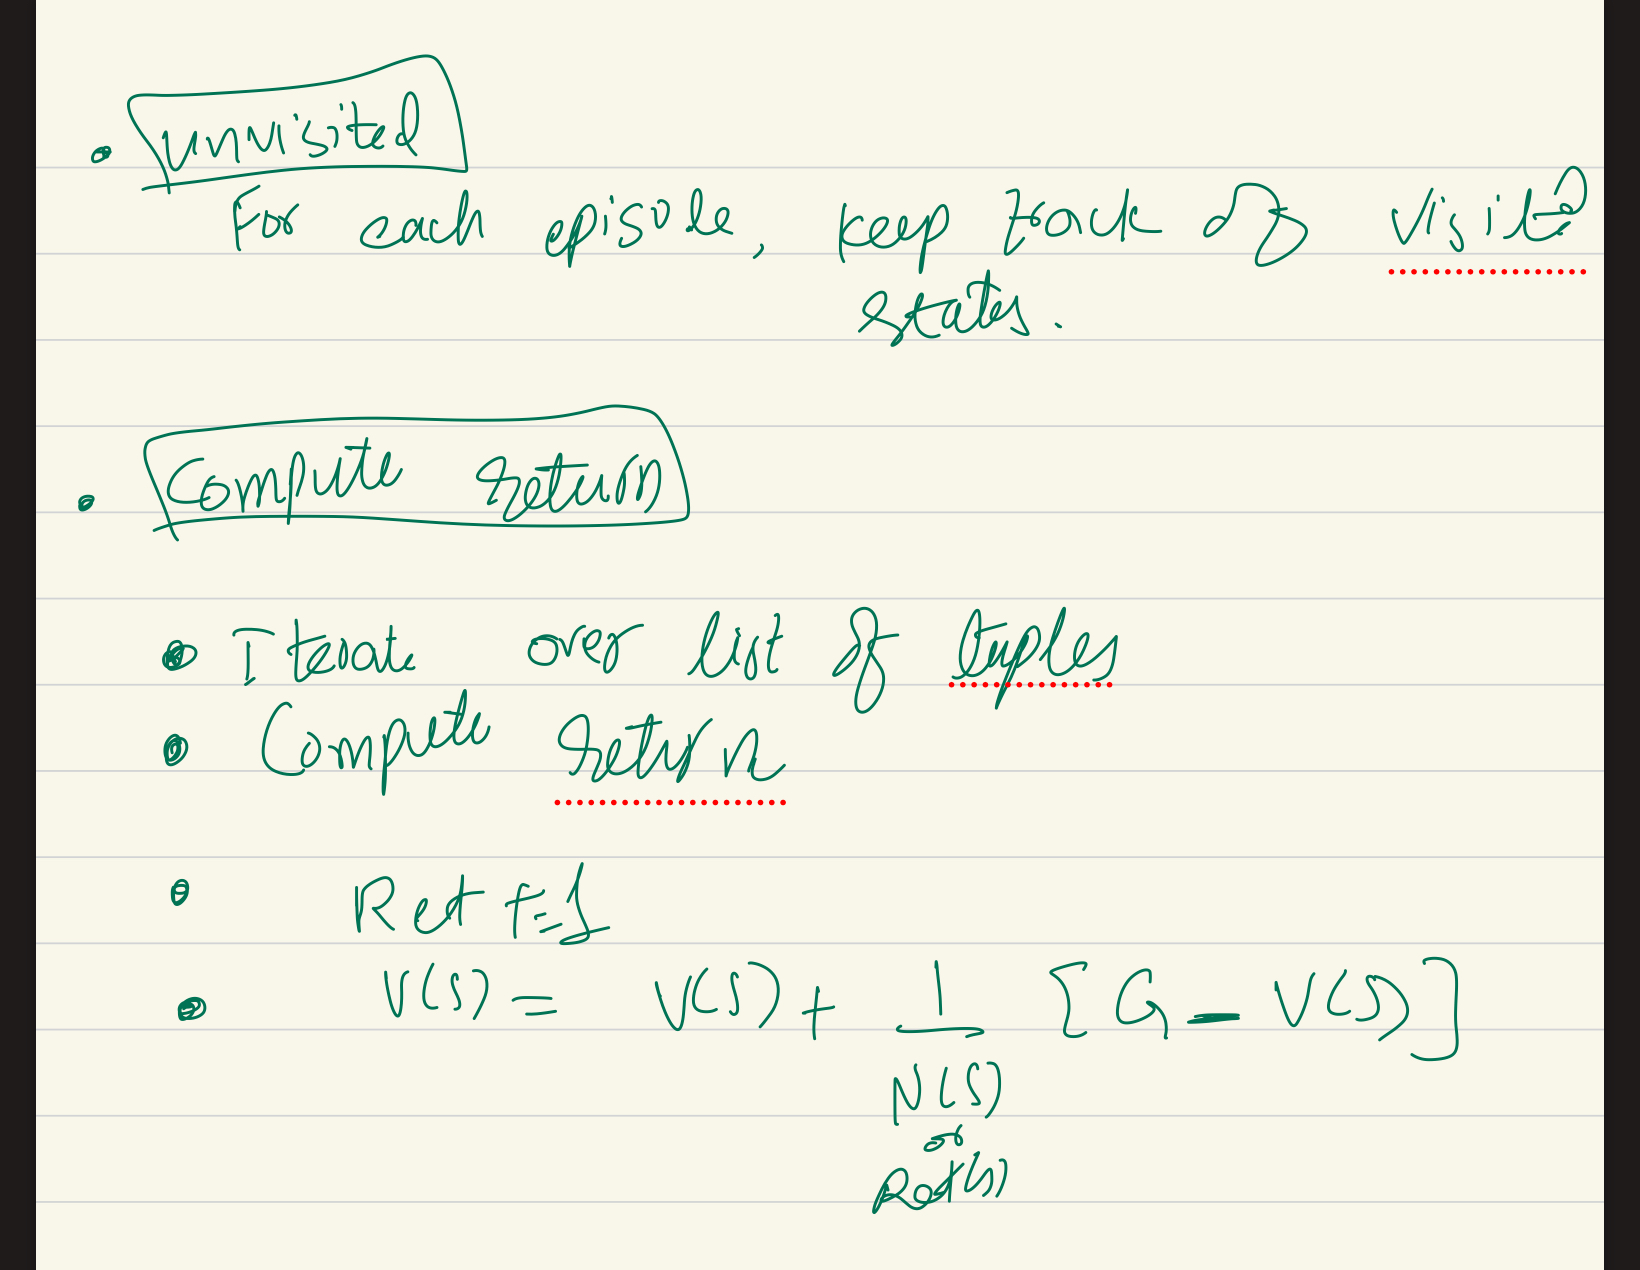 • unvisited
For each episode, keep track of visited
states.
• Compute return
• Iterate over list of tuples
• Compute return
• Ret +=1
• V(S) = V(S) + 1/N(S) or Ret(s) [G - V(S)]